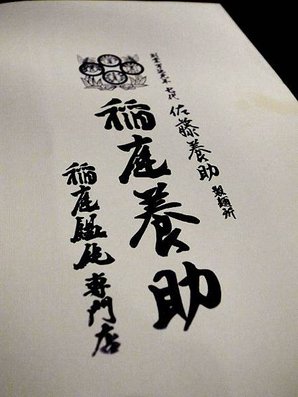 創業万延元年 七代 佐藤養助 製麺所
稲庭養助
稲庭饂飩専門店